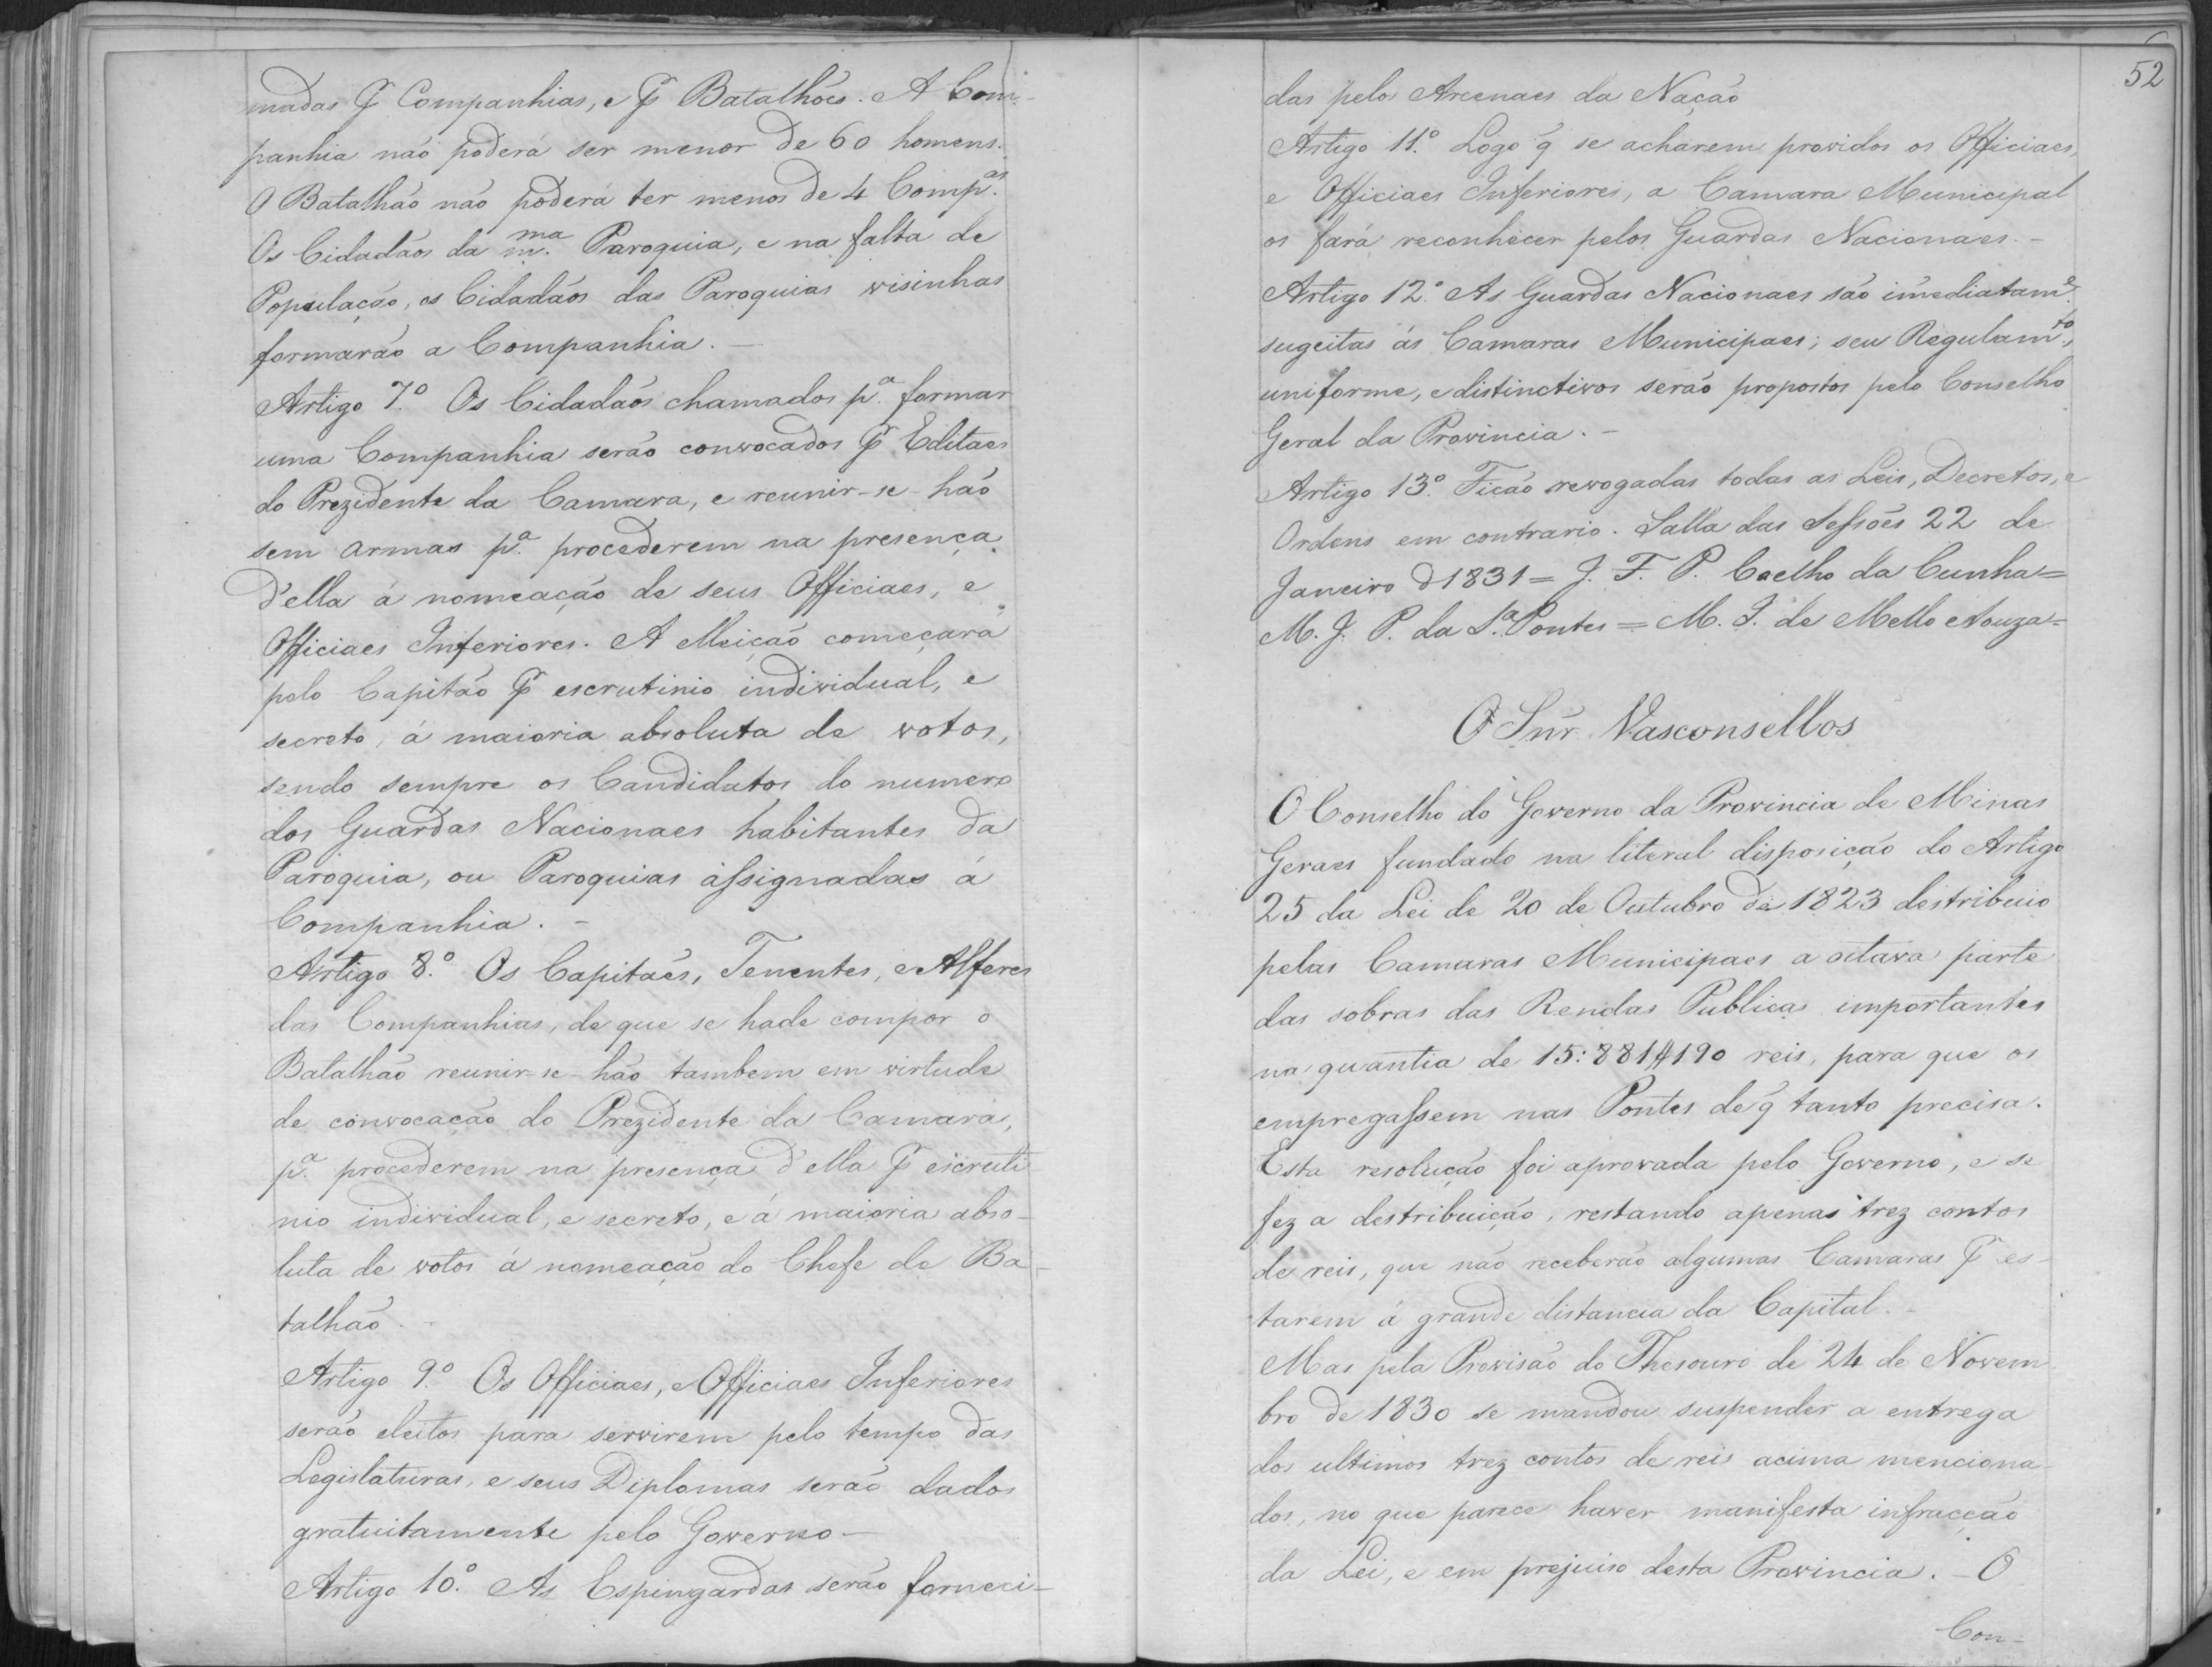 madas p̃ Companhias, e p̃ Batalhões. A Com-
panhia não poderá ser menor de 60 homens.
O Batalhão não poderá ter menos de 4 Comp.as
Os Cidadãos da m.ma Paroquia, e na falta de
População, os Cidadãos das Paroquias visinhas
formarão a Companhia. —
Artigo 7.º Os Cidadãos chamados p.a formar
uma Companhia serão convocados p̃ Editaes
do Prezidente da Camara, e reunir-se-hão
sem armas p.a procederem na presença
d'ella á nomeação de seus Officiaes, e
Officiaes Inferiores. A elleição começará
pelo Capitão p̃ escrutinio individual, e
secreto, á maioria absoluta de votos,
sendo sempre os Candidatos do numero
dos Guardas Nacionaes habitantes da
Paroquia, ou Paroquias assignadas á
Companhia. —
Artigo 8.º Os Capitaẽs, Tenentes, e Alferes
das Companhias, de que se hade compor o
Batalhão reunir-se-hão tambem em virtude
de convocação do Prezidente da Camara,
p.a procederem na presença d'ella p̃ escruti
nio individual, e secreto, e á maioria abso-
luta de votos á nomeação do Chefe de Ba-
talhão.
Artigo 9.º Os Officiaes, e Officiaes Inferiores
serão eleitos para servirem pelo tempo das
Legislaturas, e seus Diplomas serão dados
gratuitamente pelo Governo —
Artigo 10.º As Espingardas serão forneci-
52
das pelos Arcenaes da Nação
Artigo 11.º Logo q̃ se acharem providos os Officiaes,
e Officiaes Inferiores, a Camara Municipal
os fará reconhecer pelos Guardas Nacionaes. —
Artigo 12.º As Guardas Nacionaes são imediatam.e
sugeitas ás Camaras Municipaes; seu Regulam.to,
uniforme, e distinctivos serão propostos pelo Conselho
Geral da Provincia. —
Artigo 13.º Ficão revogadas todas as Leis, Decretos, e
Ordens em contrario. Salla das Sessões 22 de
Janeiro d 1831 = J. F. P. Coelho da Cunha =
M. J. P. da S.a Pontes = M. I. de Mello e Souza =
O Snr. Vasconsellos
O Conselho do Governo da Provincia de Minas
Geraes fundado na literal disposição do Artigo
25 da Lei de 20 de Outubro de 1823 destribuio
pelas Camaras Municipaes a oitava parte
das sobras das Rendas Publicas importantes
na quantia de 15:881$190 reis, para que os
empregassem nas Pontes de q̃ tanto precisa.
Esta resolução foi aprovada pelo Governo, e se
fez a destribuição, restando apenas trez contos
de reis, que não receberão algumas Camaras p̃ es-
tarem á grande distancia da Capital. -
Mas pela Provisão do Thesouro de 24 de Novem
bro de 1830 se mandou suspender a entrega
dos ultimos trez contos de reis acima menciona-
dos, no que parece haver manifesta infracção
da Lei, e em prejuiso desta Provincia. - O
Con-